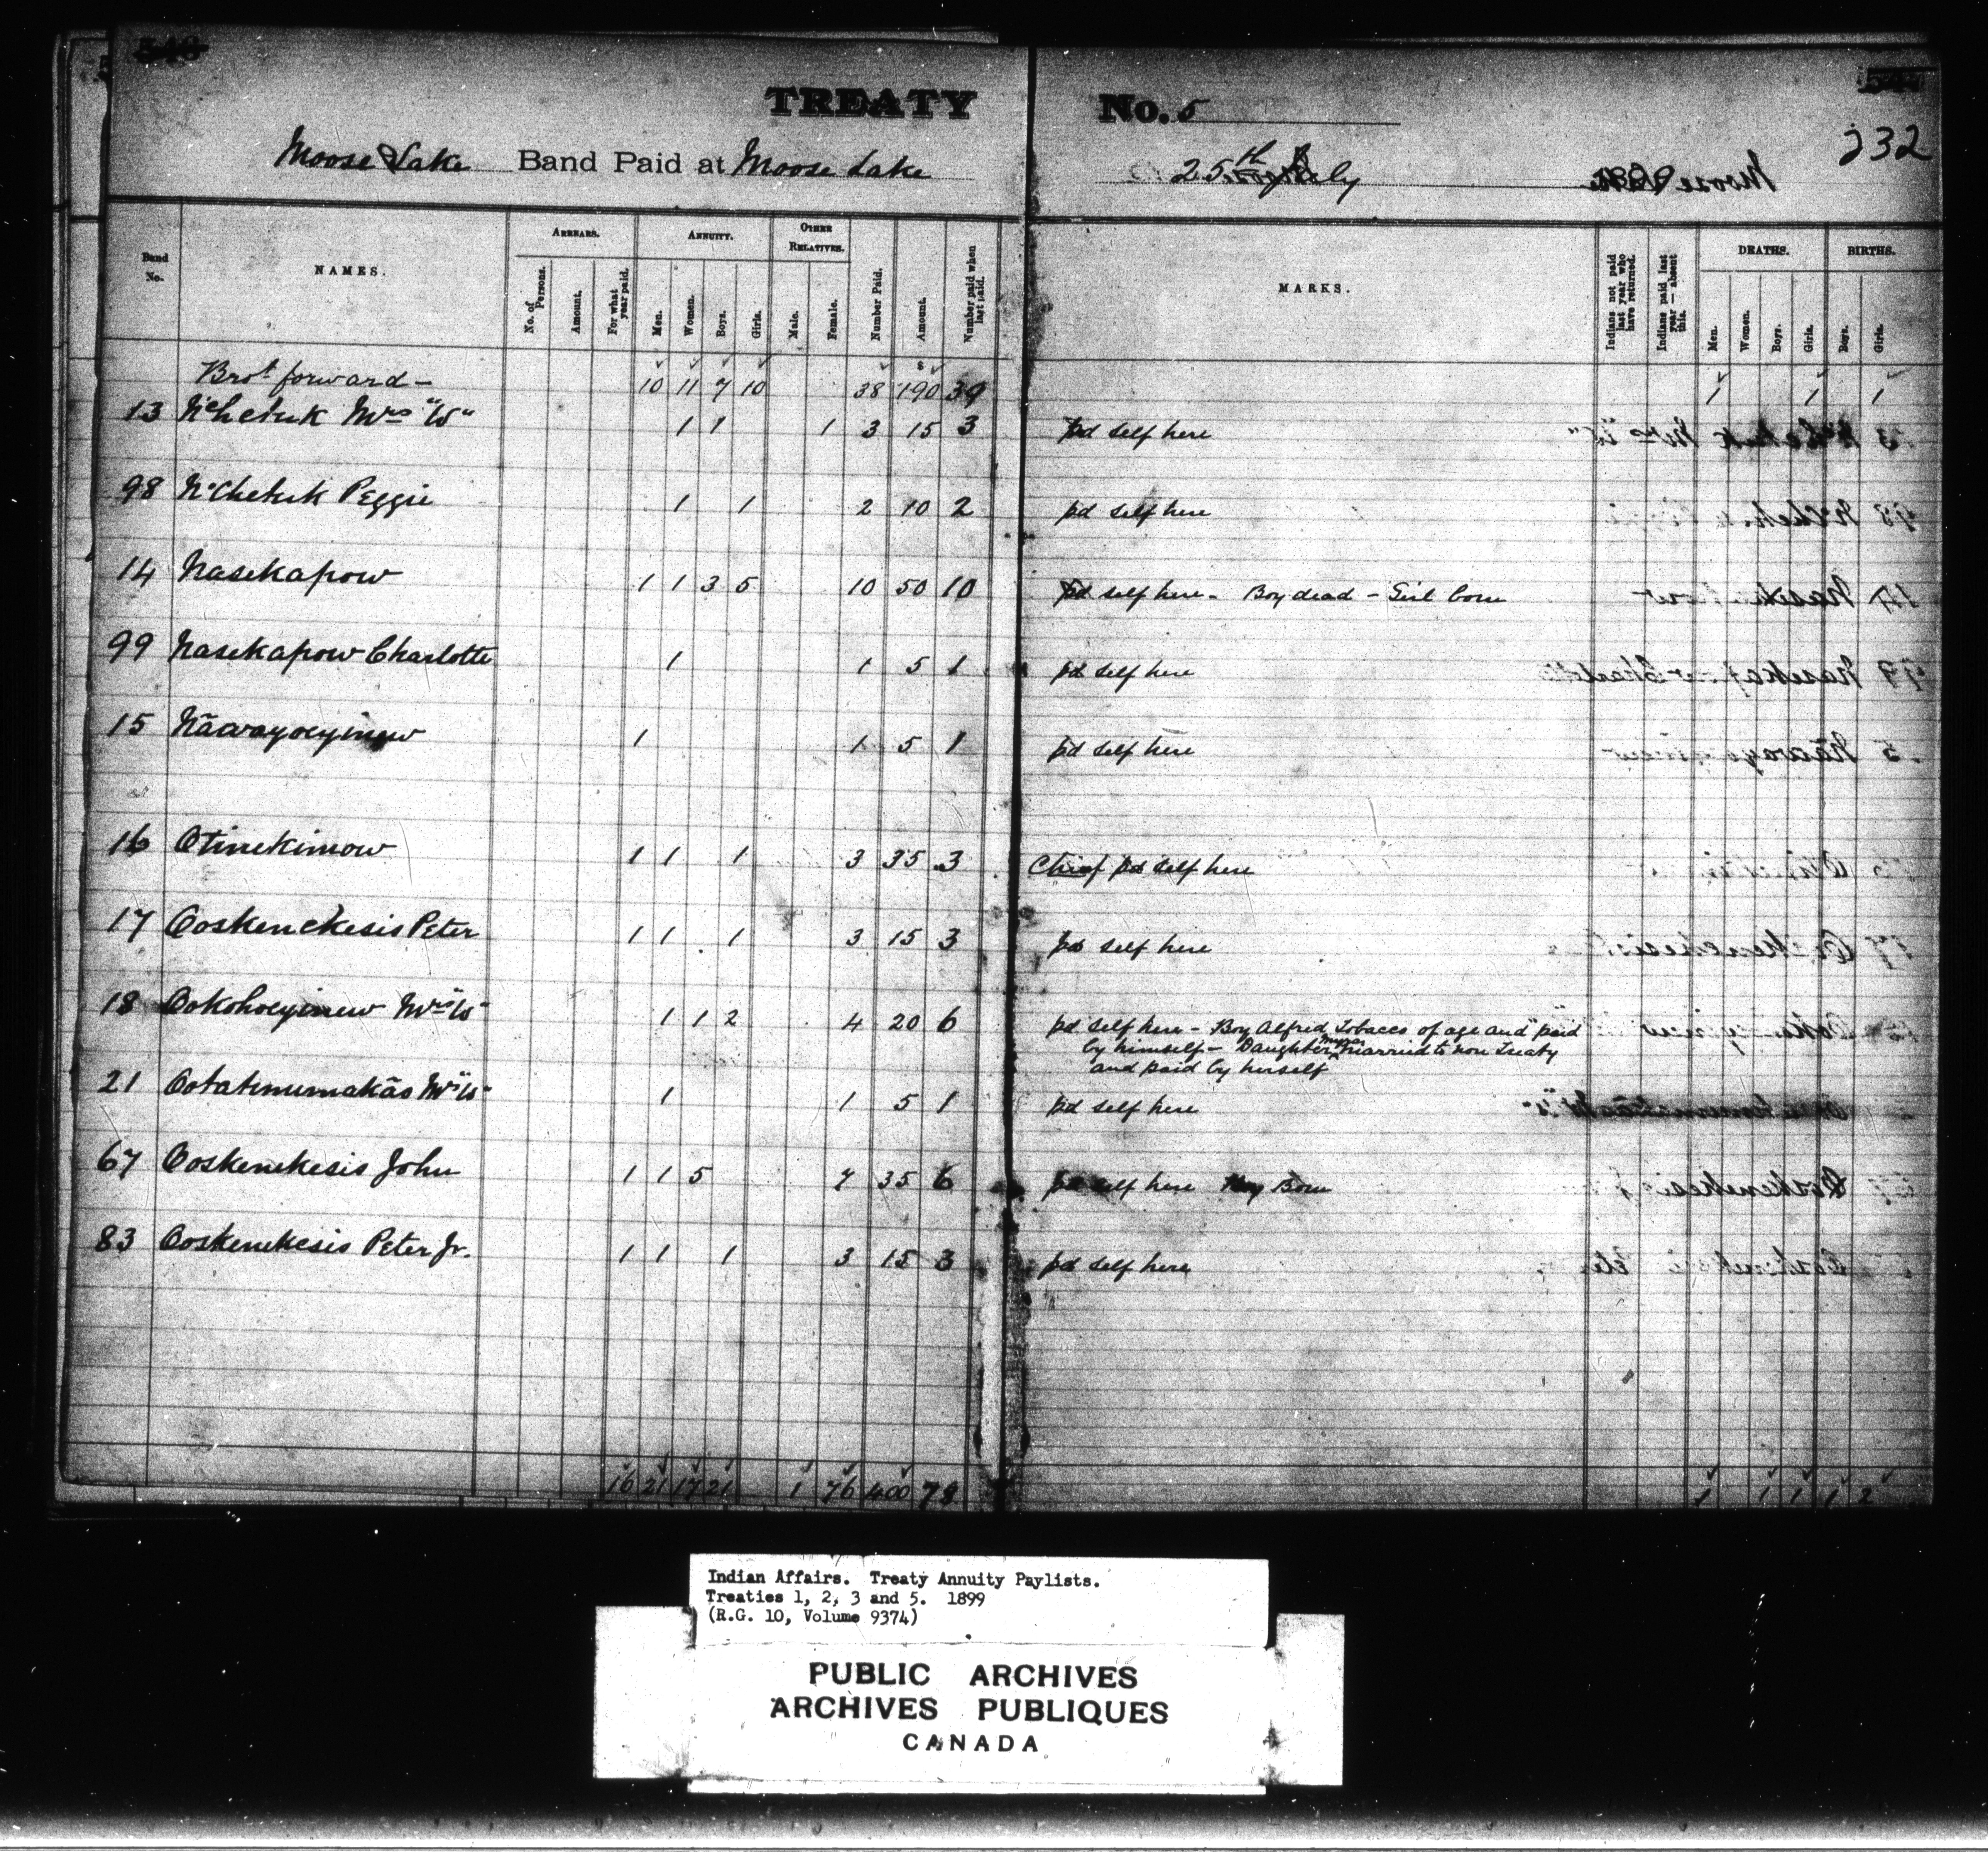 540
TREATY No. 5
232
Moose Lake Band Paid at Moose Lake 25th July
Band No.
NAMES.
ARREARS.
No. of Persons.
Amount.
For what year paid.
ANNUITY.
Men.
Women.
Boys.
Girls.
OTHER RELATIVES.
Male.
Female.
Number Paid.
Amount.
Number paid when last paid.
MARKS.
Indians not paid last year who have returned.
Indians paid last year — absent this.
DEATHS.
Men.
Women.
Boys.
Girls.
BIRTHS.
Boys.
Girls.
Brot forward — 10 11 7 10 38 190 39 1 1 1
13 Mrs "W" 1 1 1 3 15 3 pd self here
98 Peggie 1 1 2 10 2 pd self here
14 Nasekapow 1 1 3 5 10 50 10 pd self here - Boy dead - Girl born
99 Nasekapow Charlotte 1 1 5 1 pd self here
15 1 1 5 1 pd self here
16 Otinekimow 1 1 1 3 35 3 Chief pd self here
17 Ooskenekesis Peter 1 1 1 3 15 3 pd self here
18 Ookohoeyinew Mrs "W" 1 1 2 4 20 6 pd self here - Boy Alfred Tobacco of age and paid
by himself - Daughter married to non Treaty
and paid by herself
21 Mrs "W" 1 1 5 1 pd self here
67 Ooskenekesis John 1 1 5 7 35 6 pd self here Boy Born
83 Ooskenekesis Peter Jr. 1 1 1 3 15 3 pd self here
16 21 17 21 1 76 400 78 1 1 1 1 2
Indian Affairs. Treaty Annuity Paylists.
Treaties 1, 2, 3 and 5. 1899
(R.G. 10, Volume 9374)
PUBLIC ARCHIVES
ARCHIVES PUBLIQUES
CANADA